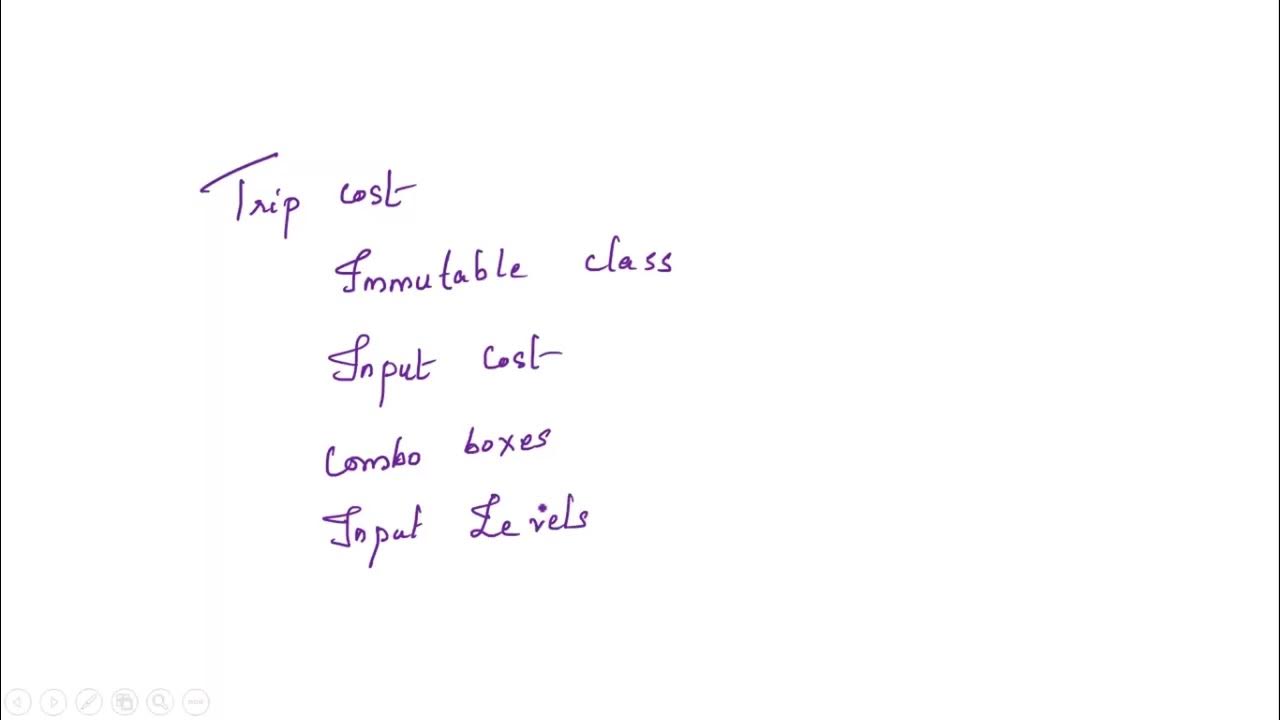 Trip cost
Immutable class
Input cost
Combo boxes
Input Levels